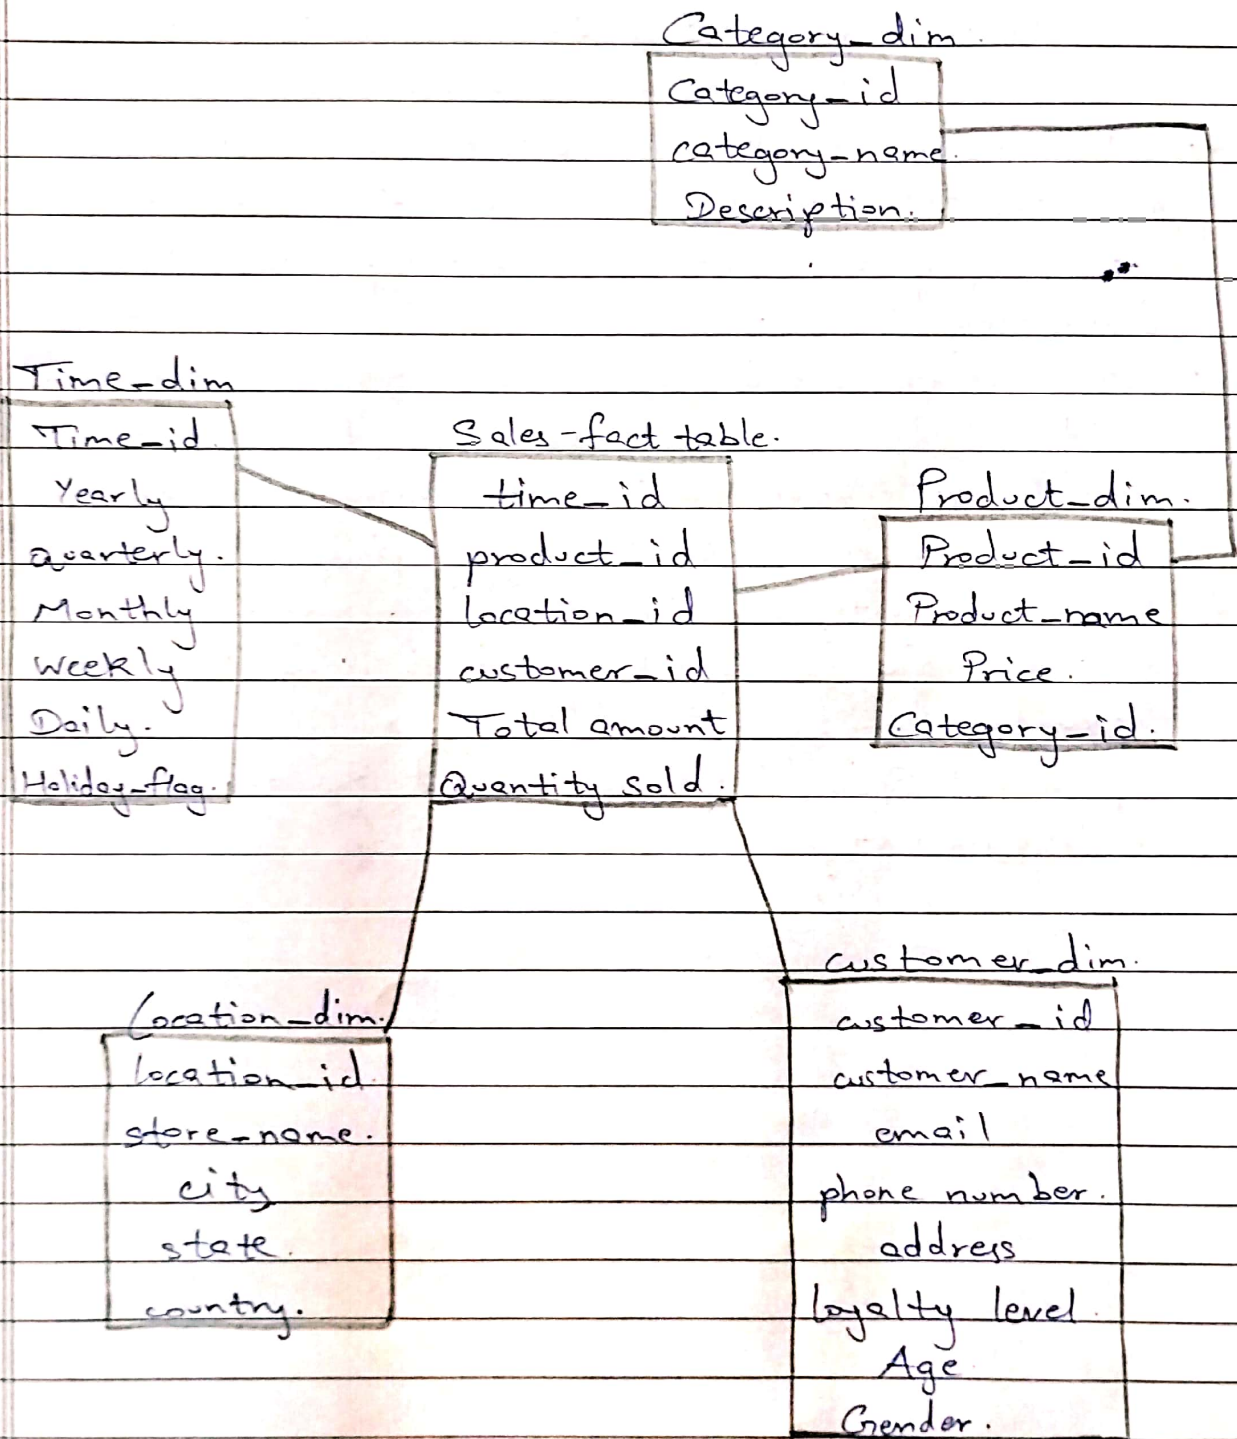 Category_dim.
Category_id
category_name.
Description.
Time_dim
Time_id
Yearly
quarterly.
Monthly
Weekly
Daily.
Holiday_flag.
Sales-fact table.
time_id
product_id
location_id
customer_id
Total amount
Quantity sold.
Product_dim.
Product_id
Product_name
Price.
Category_id.
Location_dim.
location_id
store_name.
city
state.
country.
customer_dim.
customer_id
customer_name
email
phone number.
address
loyalty level.
Age
Gender.